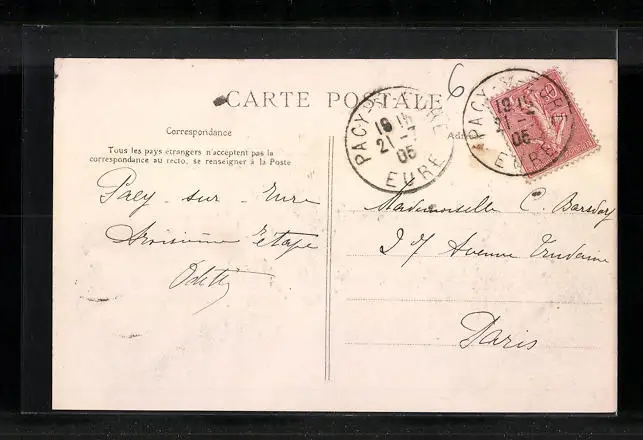 6
CARTE POSTALE
Correspondance
Tous les pays étrangers n'acceptent pas la
correspondance au recto, se renseigner à la Poste
PACY-S-EURE
18 15
21 -7
05
EURE
PACY-S-EURE
18 15
21 -7
05
EURE
Pacy - sur - Eure
troisième étape
Odette
Mademoiselle C.
Avenue Trudaine
Paris